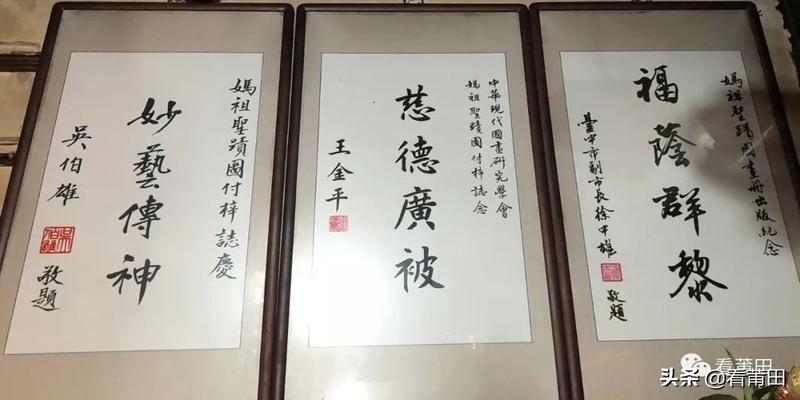 媽祖聖蹟圖畫冊出版紀念
福蔭群黎
臺中市副市長徐中雄
敬題
中華現代國畫研究學會
媽祖聖蹟圖付梓誌念
慈德廣被
王金平
媽祖聖蹟圖付梓誌慶
妙藝傳神
吳伯雄
敬題
看莆田
头条@看莆田